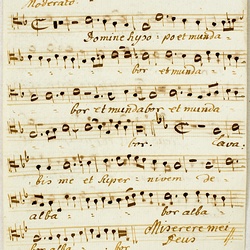 Moderato.
Domine hyso - po et munda
bor et munda
bor et munda bor et munda
bor. Lava.
bis me et super - nivem de -
alba - bor alba
bor alba - bor. Miserere mei
Deus